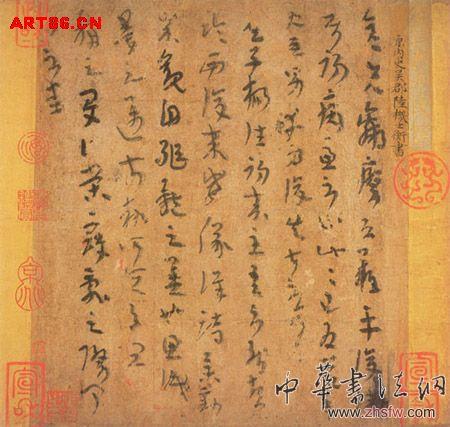 ART86.CN
原內史吳郡陸機士衡書
彥先羸瘵恐難平復
初病慮不止此此已為慶
使唯男幸為復失前憂耳
子楊往初來主吾不能盡
臨西復來威儀詳跱舉動
成觀自軀體之美也思識
量之邁前執所恒有宜
稱之夏伯榮寇亂之際聞
問不悉
中華書法網
www.zhsfw.com